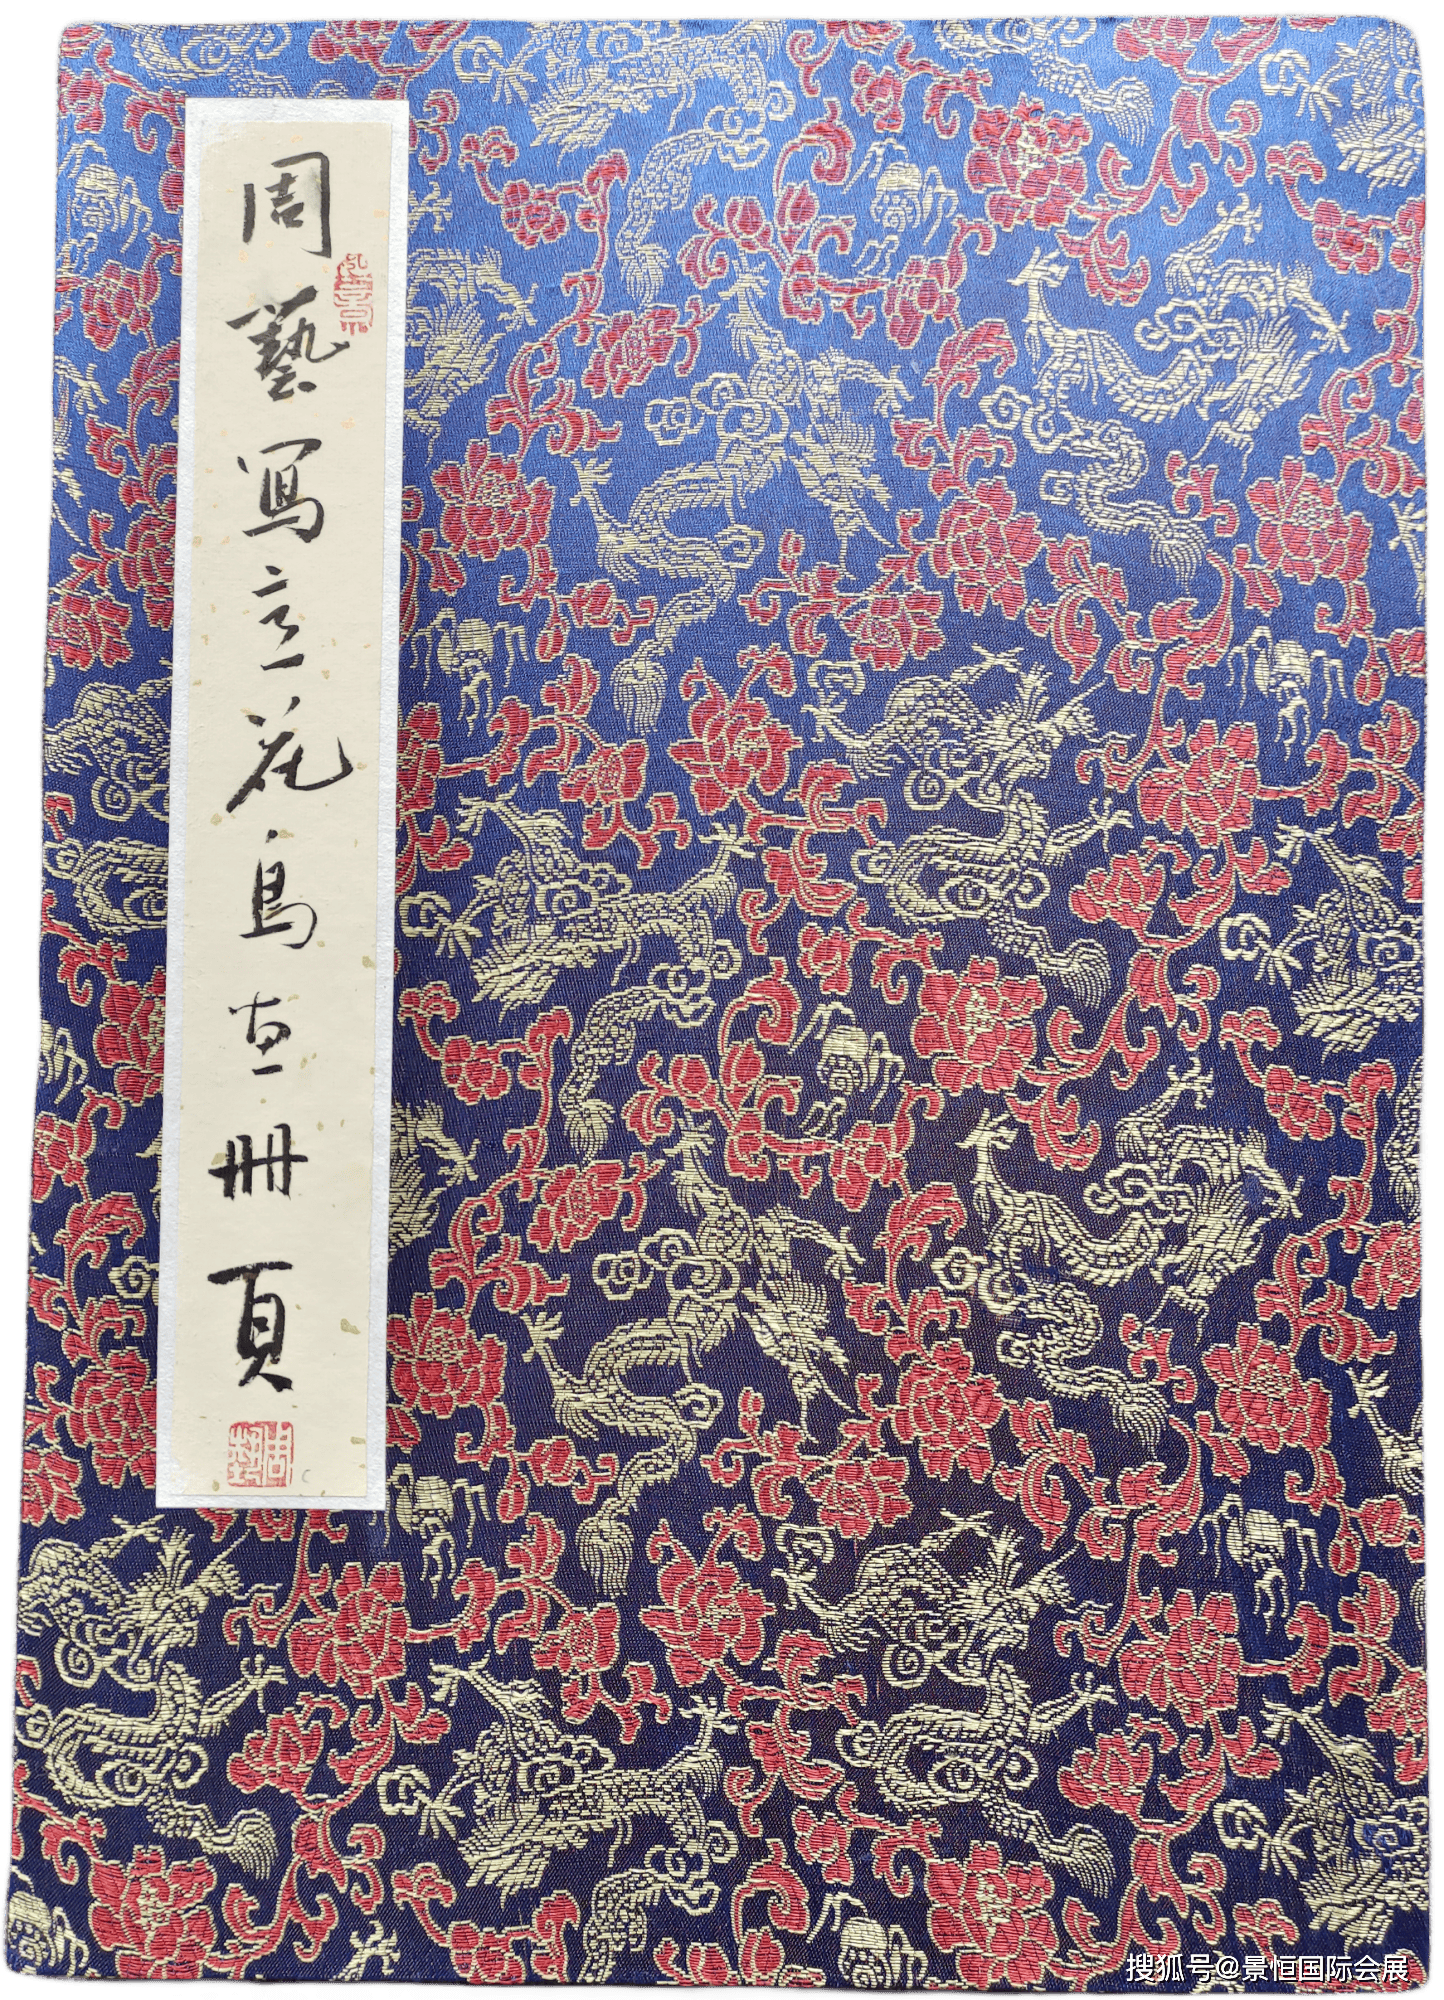 周藝寫意花鳥畫冊頁
周藝
搜狐号@景恒国际会展